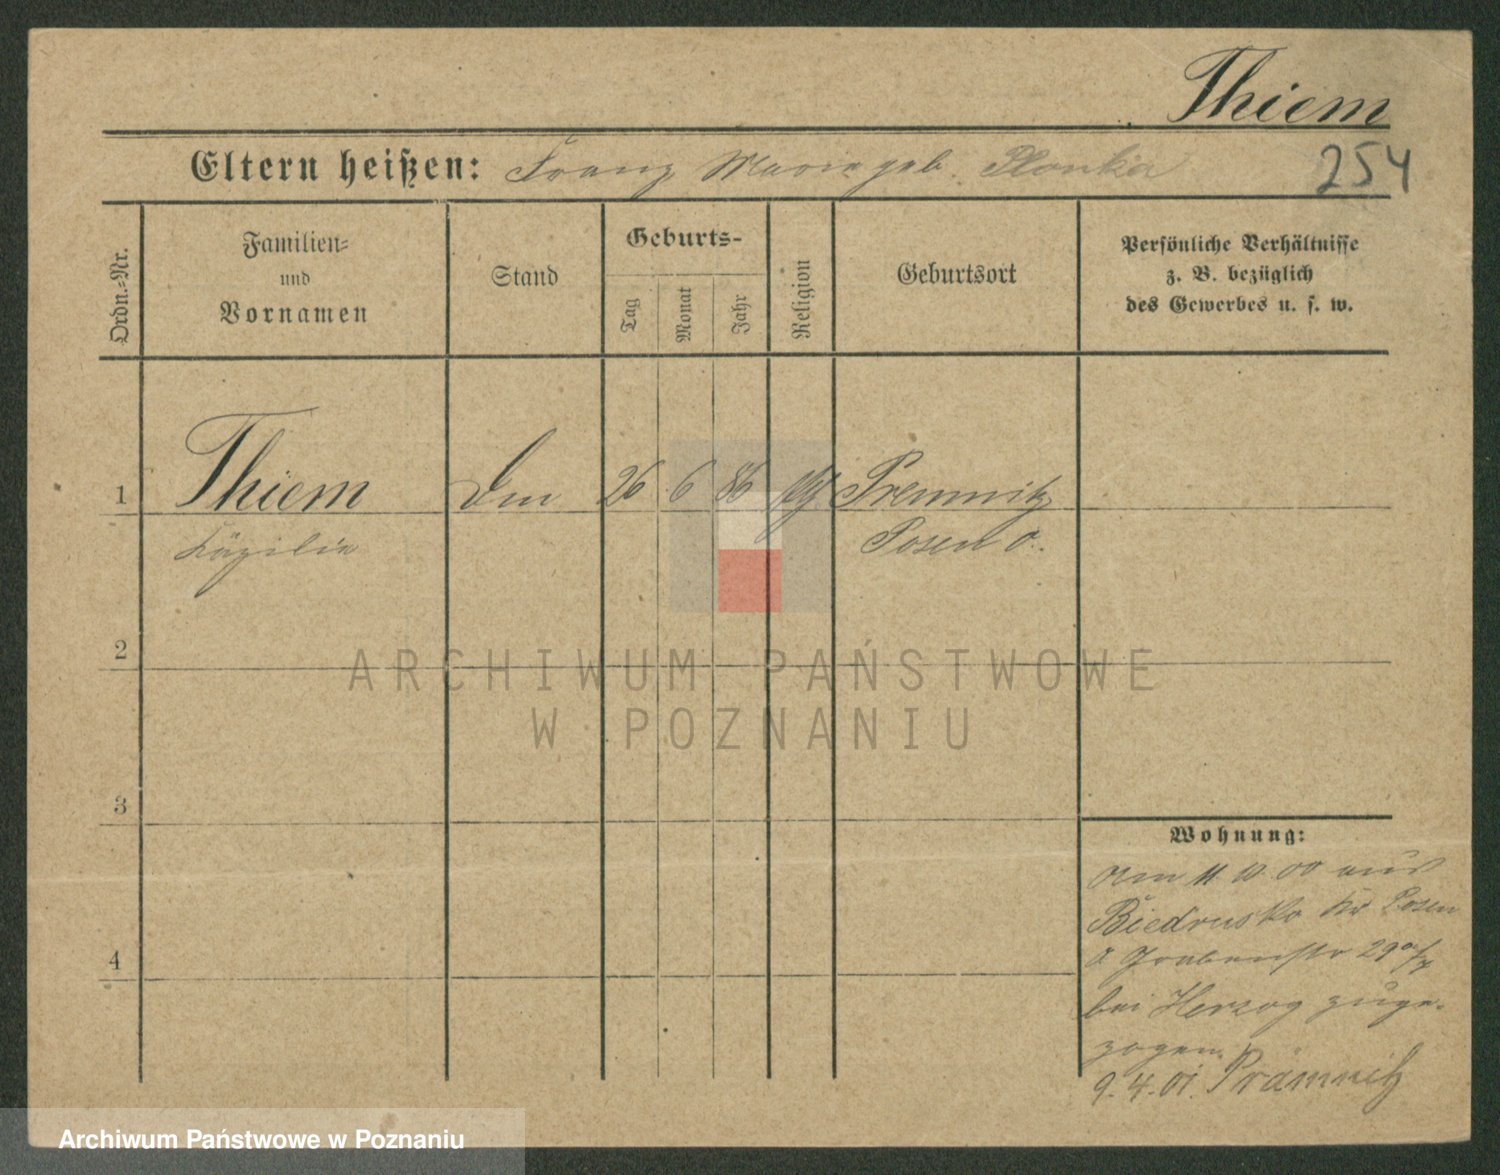 Thiem
Eltern heißen: Franz Marie geb. Plonka
254
Ordn.-Nr.
Familien-
und
Vornamen
Stand
Geburts-
Tag
Monat
Jahr
Religion
Geburtsort
Persönliche Verhältnisse
z. B. bezüglich
des Gewerbes u. s. w.
1 Thiem 26 6 86 Premnitz
Käzilie Posen O.
2
ARCHIWUM PAŃSTWOWE
W POZNANIU
3
Wohnung:
Am 11 10 00 aus
Biedrusko Kr Posen
O Grabenstr 29
bei Herzog zuge-
zogen.
9.4.01. Prämnitz
4
Archiwum Państwowe w Poznaniu